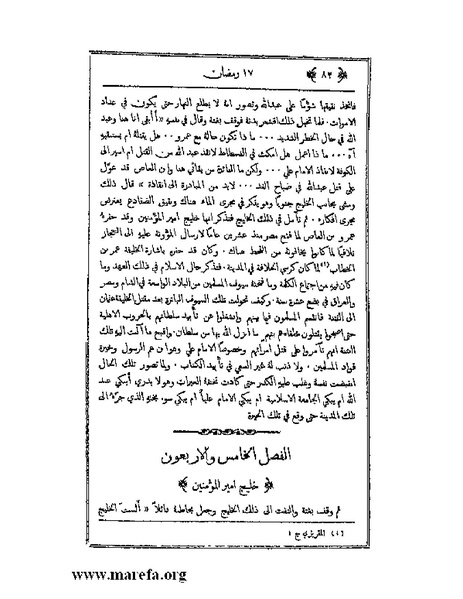 ﴿ ٨٢ ﴾ ١٧ رمضان
فاتخذ نقيقها شؤمًا على عبدالله وتصور انه لا يطلع النهار حتى يكون في عداد
الاموات . فلما تخيل ذلك اقشعر بدنه فوقف بغتة وقال في نفسه « أأبقى انا هنا وعبد
الله في حال الخطر الشديد ... ما ذا تكون حاله مع عمرو ... هل يقتله ام يستبقيه
آه ... ما ذا اعمل هل امكث في الفسطاط لانقذ عبد الله من القتل ام اسير الى
الكوفة لانقاذ الامام علي ... ولكن ما الفائدة من بقائي هنا وابن العاص قد عوّل
على قتل عبدالله في صباح الغد ... لابد من المبادرة الى انقاذه » قال ذلك
ومشى بجانب الخليج جنوبًا وهو يفكر في مجرى الماء هناك ونقيق الضفادع يعترض
مجرى افكاره . ثم تأمل في ذلك الخليج فتذكر انها خليج امير المؤمنين وقد حفره
عمرو بن العاص لما فتح مصر منذ عشرين عامًا لارسال المؤونة عليه الى الحجاز
تلافيًا لما كانوا يخافونه من القحط هناك . وكان قد حفره باشارة الخليفة عمر بن
الخطاب (١) لما كان كرسي الخلافة في المدينة . فتذكر حال الاسلام في ذلك العهد وما
كان فيه من اجتماع الكلمة وما فتحته سيوف المسلمين من البلاد الواسعة في الشام ومصر
والعراق في بضع عشرة سنة . وكيف تحولت تلك السيوف الباترة بعد مقتل الخليفة عثمان
الى الفتنة فانقسم المسلمون فيما بينهم وانشغلوا عن تأييد سلطانهم بالحروب الاهلية
حتى اصبحوا يقتلون خلفاءهم بيدهم ما انزل الله بها من سلطان . واقبح ما آلت اليه تلك
الفتنة انهم تآمروا على قتل امرائهم وخصوصًا الامام علي وهو ابن عم الرسول وخيرة
قواد المسلمين . ولا ذنب له غير السعي في تأييد الكتاب . ولما تصور تلك الحال
انقبضت نفسه وغلب عليه الكدر حتى كادت تخنقه العبرات وهو لا يدري أيبكي عبد
الله ام يبكي الجامعة الاسلامية ام يبكي الامام عليًا ام يبكي سوء بخته الذي جرّه الى
تلك المدينة حتى وقع في تلك الحيرة
الفصل الخامس والاربعون
﴿ خليج امير المؤمنين ﴾
ثم وقف بغتة والتفت الى ذلك الخليج وجعل يخاطبه قائلاً « ألستَ الخليج
(١) المقريزي ج ١
www.marefa.org